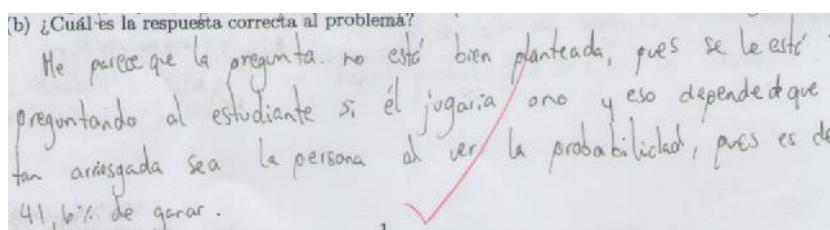 (b) ¿Cuál es la respuesta correcta al problema?
Me parece que la pregunta no está bien planteada, pues se le está
preguntando al estudiante si él jugaria o no y eso depende de que
tan arriesgada sea la persona al ver la probabilidad, pues es de
41,6% de ganar.